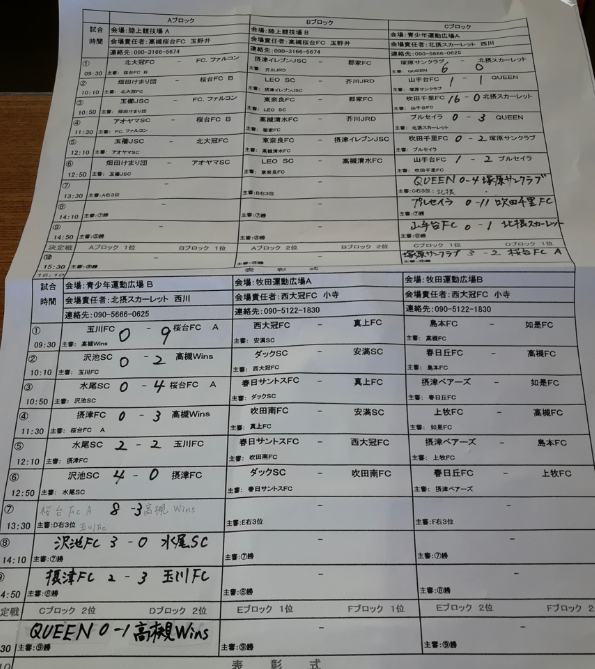 Aブロック Bブロック Cブロック
試合 会場:陸上競技場A 会場:陸上競技場B 会場:青少年運動広場A
時間 会場責任者:高槻桜台FC 玉野井 会場責任者:高槻桜台FC 玉野井 会場責任者:北摂スカーレット 西川
連絡先:090-3166-5674 連絡先:090-3166-5674 連絡先:090-5666-0625
① 北大冠FC - FC.ファルコン 摂津イレブンJSC - 郡家FC 塚原サンクラブ 6 - 0 北摂スカーレット
09:30 主審:桜台FC B 主審:芥川JRD 主審:QUEEN
② 畑田けまり団 - 桜台FC B LEO SC - 芥川JRD 山手台FC 1 - 1 QUEEN
10:10 主審:北大冠FC 主審:摂津イレブンJSC 主審:塚原サンクラブ
③ 玉櫛JSC - FC.ファルコン 東奈良FC - 郡家FC 吹田千里FC 16 - 0 北摂スカーレット
10:50 主審:畑田けまり団 主審:LEO SC 主審:山手台FC
④ アオヤマSC - 桜台FC B 高槻清水FC - 芥川JRD ブルセイラ 0 - 3 QUEEN
11:30 主審:FC.ファルコン 主審:郡家FC 主審:北摂スカーレット
⑤ 玉櫛JSC - 北大冠FC 東奈良FC - 摂津イレブンJSC 吹田千里FC 0 - 2 塚原サンクラブ
12:10 主審:アオヤマSC 主審:高槻清水FC 主審:ブルセイラ
⑥ 畑田けまり団 - アオヤマSC LEO SC - 高槻清水FC 山手台FC 1 - 2 ブルセイラ
12:50 主審:玉櫛JSC 主審:東奈良FC 主審:吹田千里FC
⑦ - - QUEEN 0-4 塚原サンクラブ
13:30 主審:A右3位 主審:B右3位 主審:C右3位
⑧ - - ブルセイラ 0-11 吹田千里FC
14:10 主審:⑦勝 主審:⑦勝 主審:⑦勝
⑨ - - 山手台FC 0-1 北摂スカーレット
14:50 主審:⑧勝 主審:⑧勝 主審:⑧勝
決定戦 Aブロック 1位 Bブロック 1位 Aブロック 2位 Bブロック 2位 Cブロック 1位 Dブロック 1位
⑩ - - 塚原サンクラブ 3-2 桜台FC A
15:30 主審:⑨勝
表彰式
試合 会場:青少年運動広場 B 会場:牧田運動広場A 会場:牧田運動広場B
時間 会場責任者:北摂スカーレット 西川 会場責任者:西大冠FC 小寺 会場責任者:西大冠FC 小寺
連絡先:090-5666-0625 連絡先:090-5122-1830 連絡先:090-5122-1830
① 玉川FC 0 - 9 桜台FC A 西大冠FC - 真上FC 島本FC - 如是FC
09:30 主審:高槻Wins 主審:安満SC 主審:高槻FC
② 沢池SC 0 - 2 高槻Wins ダックSC - 安満SC 春日丘FC - 高槻FC
10:10 主審:玉川FC 主審:西大冠FC 主審:島本FC
③ 水尾SC 0 - 4 桜台FC A 春日サントスFC - 真上FC 摂津ベアーズ - 如是FC
10:50 主審:沢池SC 主審:ダックSC 主審:春日丘FC
④ 摂津FC 0 - 3 高槻Wins 吹田南FC - 安満SC 上牧FC - 高槻FC
11:30 主審:桜台FC A 主審:真上FC 主審:如是FC
⑤ 水尾SC 2 - 2 玉川FC 春日サントスFC - 西大冠FC 摂津ベアーズ - 島本FC
12:10 主審:摂津FC 主審:吹田南FC 主審:上牧FC
⑥ 沢池SC 4 - 0 摂津FC ダックSC - 吹田南FC 春日丘FC - 上牧FC
12:50 主審:水尾SC 主審:春日サントスFC 主審:摂津ベアーズ
⑦ 桜台FC A 8 - 3 高槻Wins - -
13:30 主審:D右3位 玉川FC 主審:E右3位 主審:F右3位
⑧ 沢池FC 3 - 0 水尾SC - -
14:10 主審:⑦勝 主審:⑦勝 主審:⑦勝
摂津FC 2 - 3 玉川FC - -
4:50 主審:⑧勝 主審:⑧勝 主審:⑧勝
定戦 Cブロック 2位 Dブロック 2位 Eブロック 1位 Fブロック 1位 Eブロック 2位 Fブロック 2
QUEEN 0-1 高槻Wins - -
30 主審:⑨勝 主審:⑨勝 主審:⑨勝
表彰式